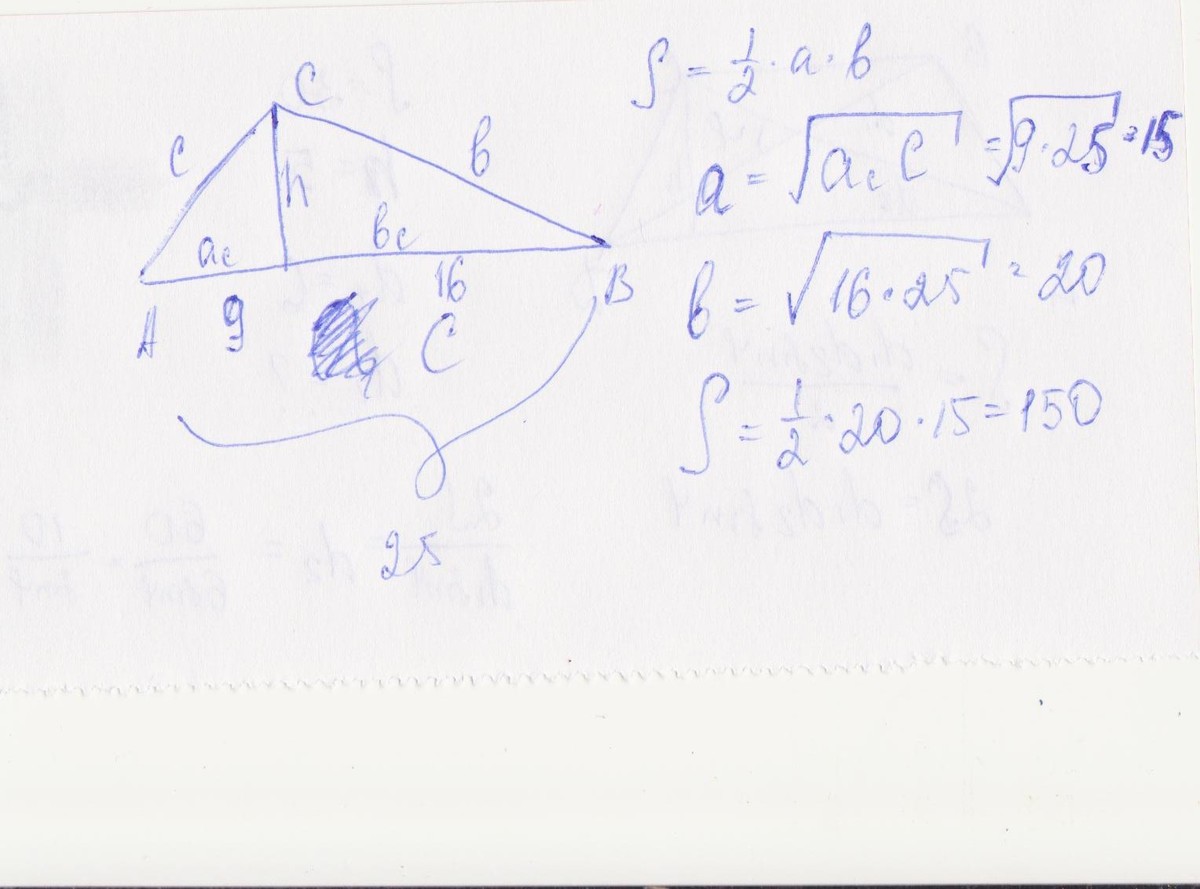 C
c
h
b
a_c
b_c
A
9
16
B
C
25
S = 1/2 · a · b
a = √(a_c C) = √(9·25) = 15
b = √(16·25) = 20
S = 1/2 · 20 · 15 = 150